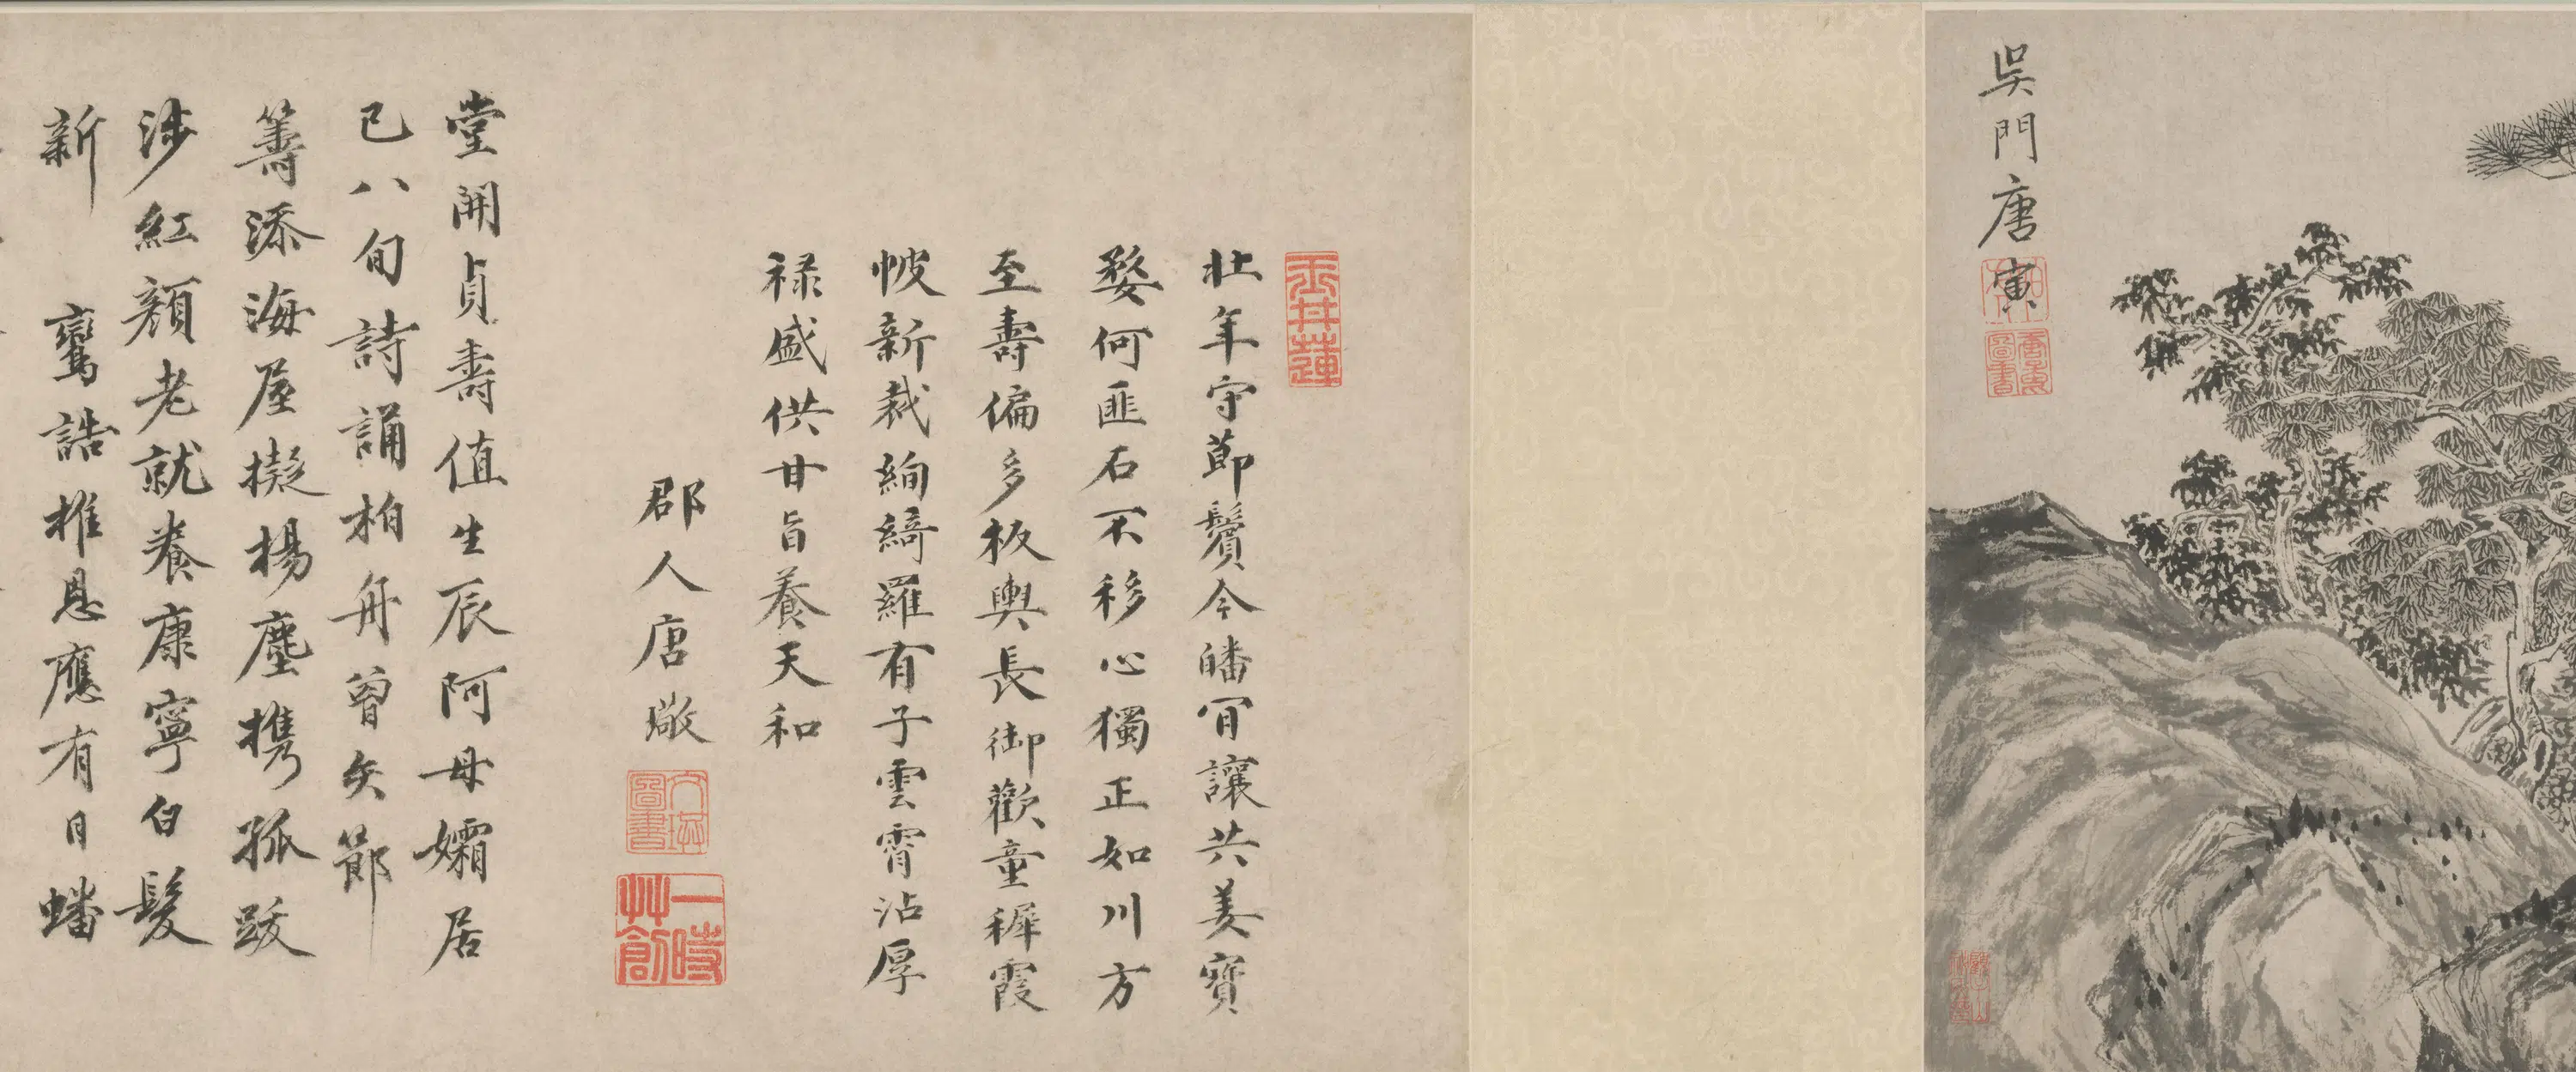 吳門唐寅
壯年守節鬢今皤肎讓共姜寶
婺何匪石不移心獨正如川方
至壽偏多板輿長御歡童穉霞
帔新裁絢綺羅有子雲霄沾厚
祿盛供甘旨養天和
郡人唐
一時艸創
堂開貞壽值生辰阿母孀居
已八旬詩誦柏舟曾矢節
籌添海屋擬楊塵携孤跋
涉紅顏老就養康寧白髮
新 鸞誥推恩應有日蟠